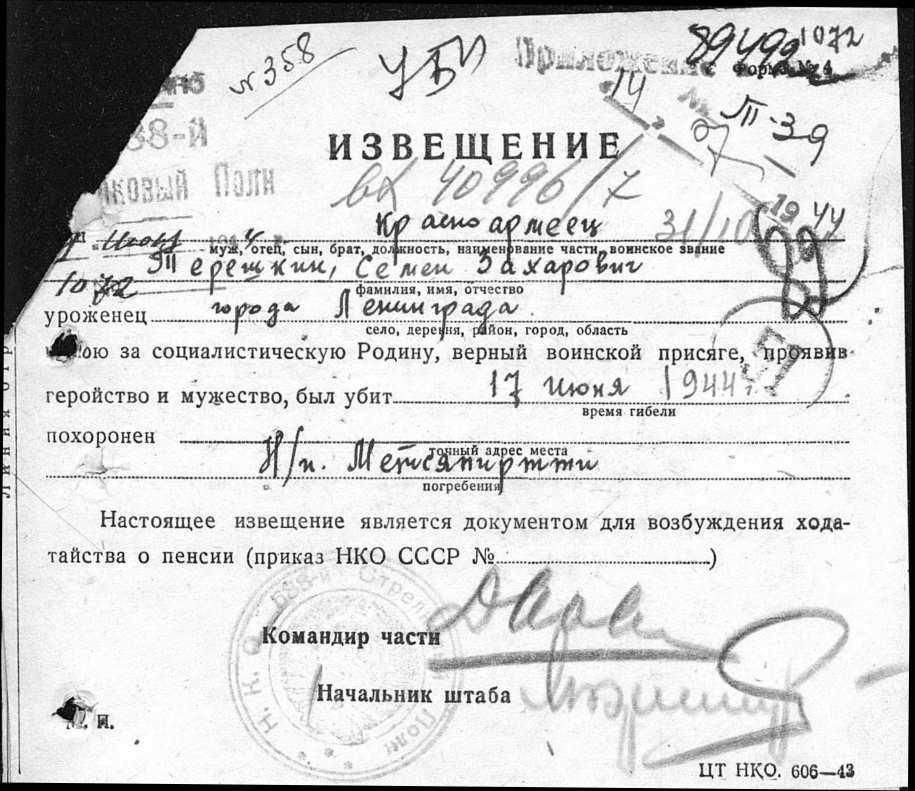 № 358
УБИ
89499 1072
Приложение
Форма № 4
14
№
III-39
88-й
Полк
ИЗВЕЩЕНИЕ
вх 40996/7
Красноармеец 31/10 1944
муж, отец, сын, брат, должность, наименование части, воинское звание
Терешкин, Семен Захарович
фамилия, имя, отчество
1072
уроженец города Ленинграда
село, деревня, район, город, область
бою за социалистическую Родину, верный воинской присяге, проявив
геройство и мужество, был убит 17 июня 1944 г.
время гибели
похоронен
точный адрес места
Н/п. Метсяпиртти
погребения
Настоящее извещение является документом для возбуждения хода-
тайства о пенсии (приказ НКО СССР № )
Н. К. О. 588-й Стрелковый Полк
Командир части
Начальник штаба
М. П.
ЦТ НКО. 606—43
Линия отр